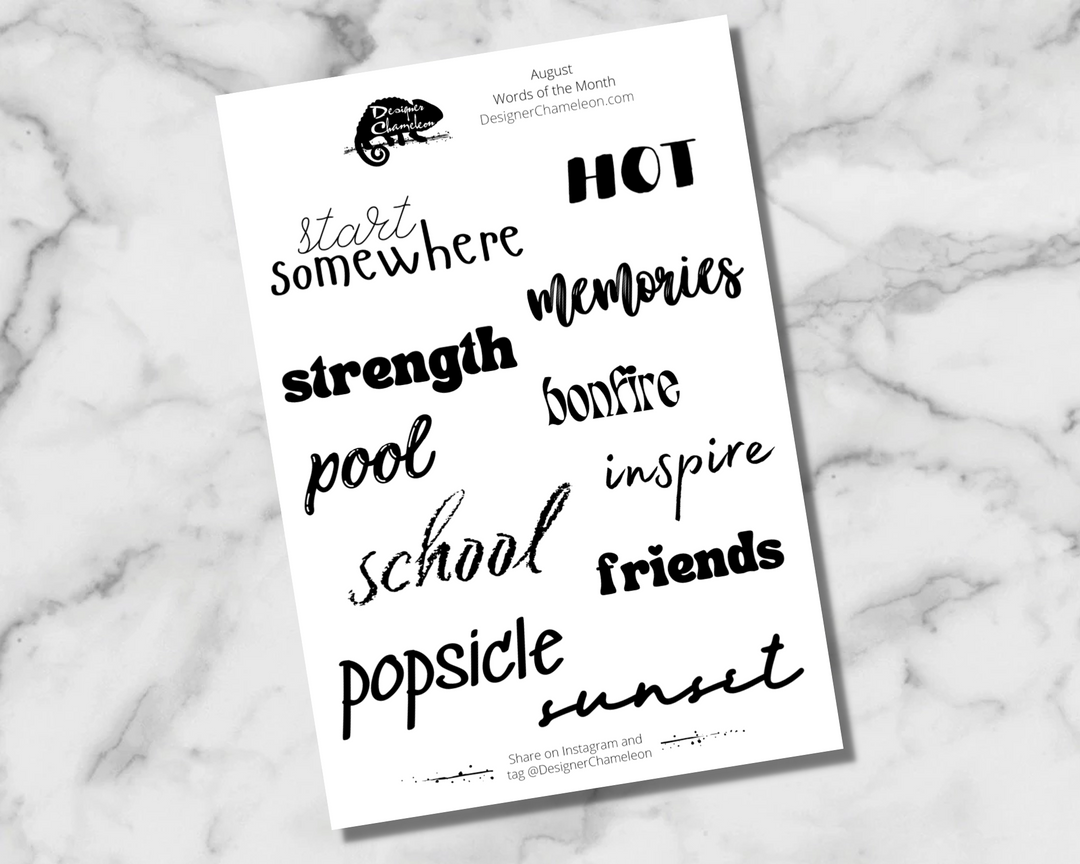 Designer
Chameleon
August
Words of the Month
DesignerChameleon.com
HOT
start
somewhere
memories
strength
bonfire
pool
inspire
school
friends
popsicle
sunset
Share on Instagram and
tag @DesignerChameleon